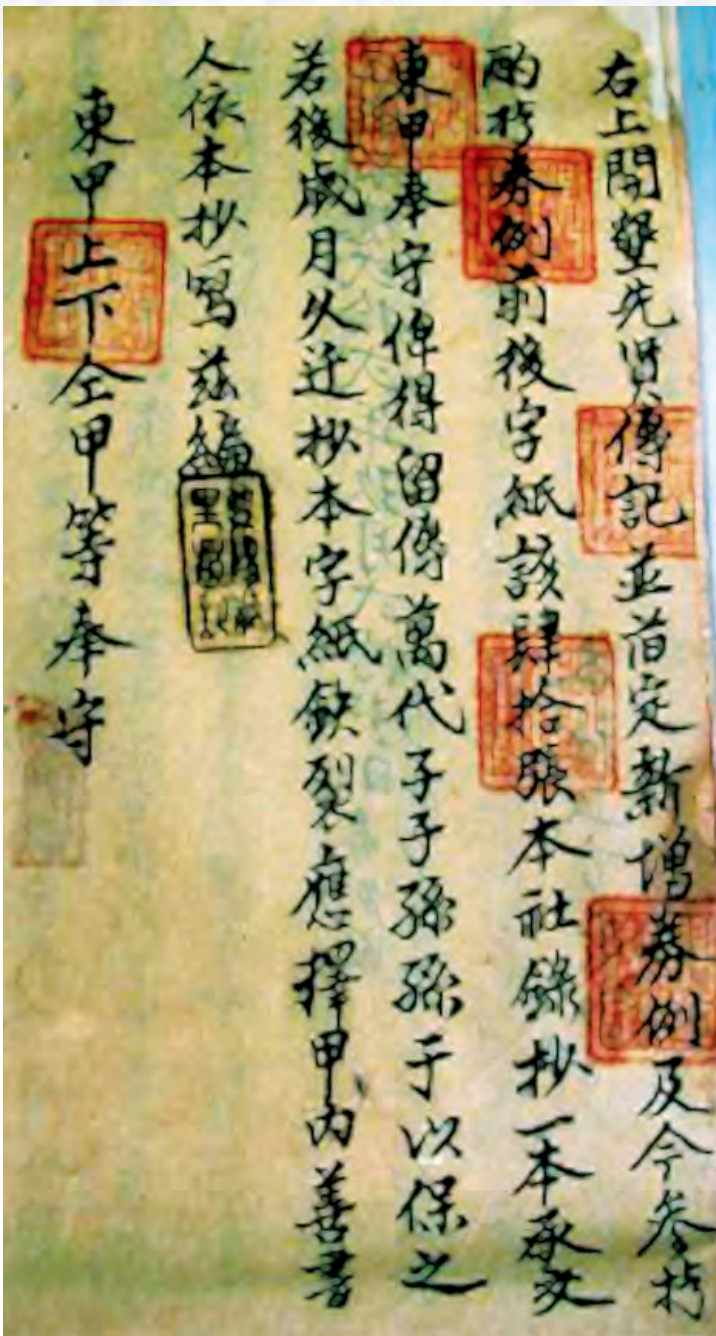 右上開墾先賢傳記並首定新增券例及今參扵
酌扵券例前後字紙該肆拾張本社錄抄一本承交
東甲奉守俾得留傳萬代子子孫孫于以保之
若後歲月久迁抄本字紙缺裂應擇甲内善書
人依本抄寫茲編
東甲上下仝甲等奉守